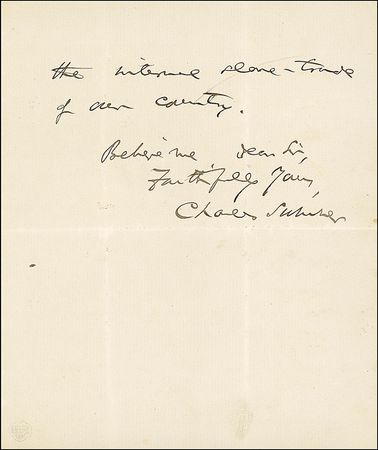 the internal slave-trade
of our country.
Believe me, dear Sir,
Faithfully Yours,
Charles Sumner